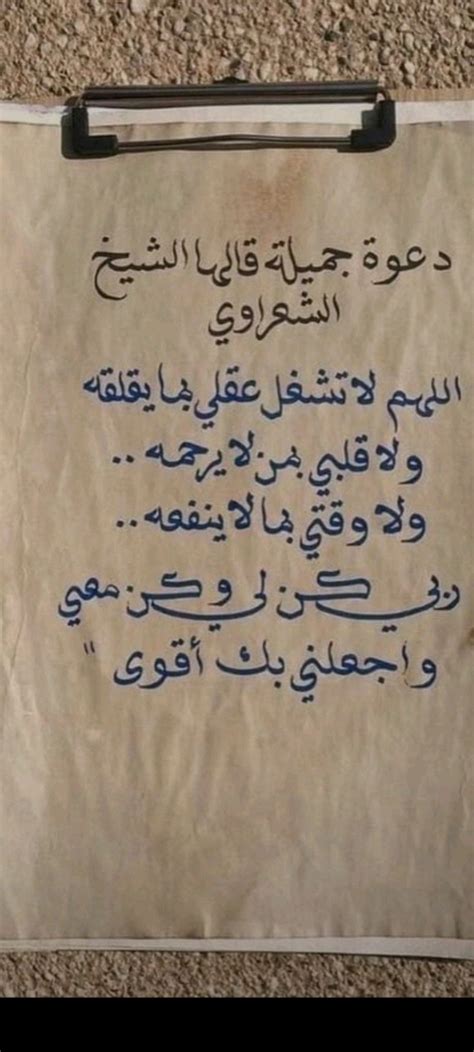 دعوة جميلة قالها الشيخ
الشعراوي
اللهم لا تشغل عقلي بما يقلقه
ولا قلبي بمن لا يرحمه ..
ولا وقتي بما لا ينفعه ..
ربي كن لي وكن معي
واجعلني بك أقوى "